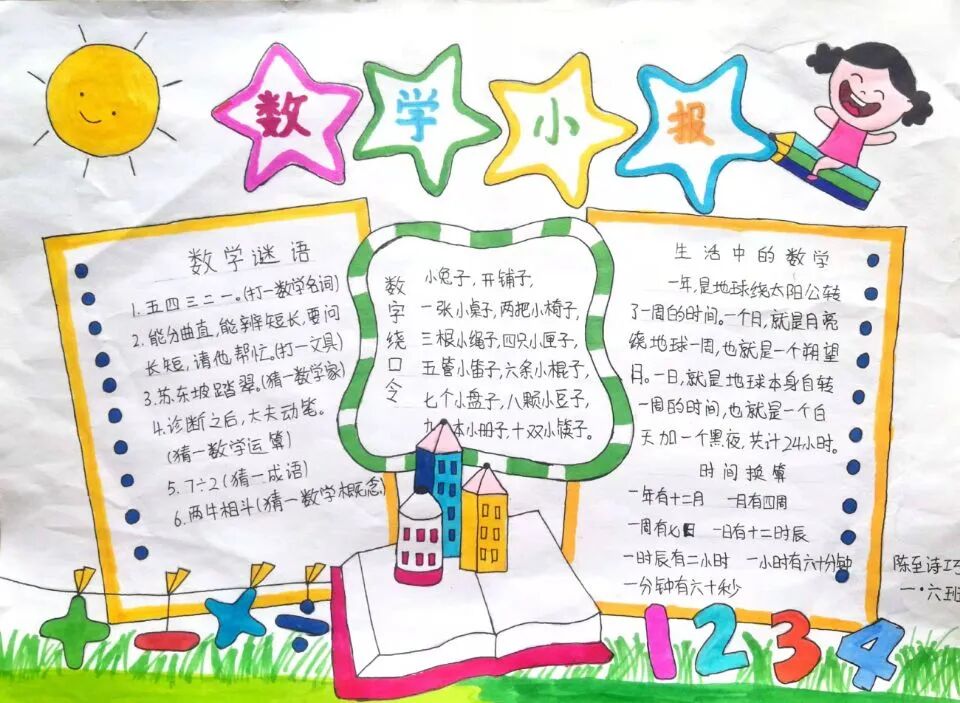 数学小报
数学谜语
1.五四三二一。(打一数学名词)
2.能分曲直,能辨短长,要问
长短,请他,帮忙。(打一文具)
3.苏东坡踏翠。(猜一数学家)
4.诊断之后,大夫动笔。
(猜一数学运算)
5.7÷2(猜一成语)
6.两牛相斗(猜一数学概念)
数字绕口令
小兔子,开铺子,
一张小桌子,两把小椅子,
三根小绳子,四只小匣子,
五管小笛子,六条小棍子,
七个小盘子,八颗小豆子,
九本小册子,十双小筷子。
生活中的数学
一年,是地球绕太阳公转
了一周的时间。一个月,就是月亮
绕地球一周,也就是一个朔望
月。一日,就是地球本身自转
一周的时间,也就是一个白
天加一个黑夜,共计24小时。
时间换算
一年有十二月 一月有四周
一周有七日 一日有十二时辰
一时辰有二小时 一小时有六十分钟
一分钟有六十秒
陈至诗巧
一·六班
+ − × ÷
1234